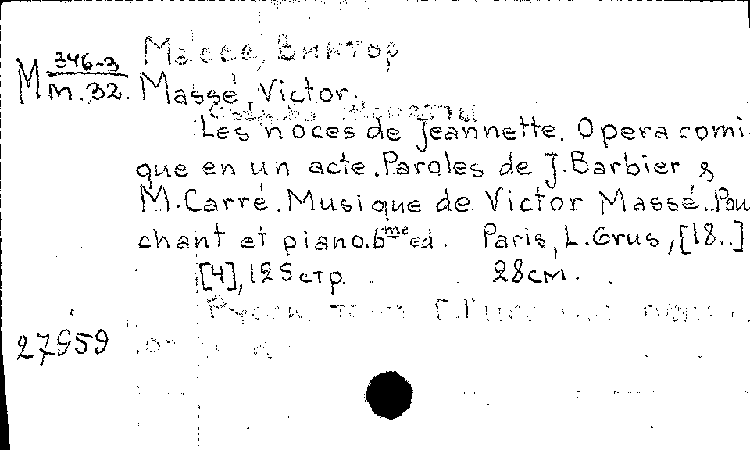 Массе, Виктор
М 346-3
м.32. Massé, Victor.
Les noces de Jeannette. Opera comi-
que en un acte. Paroles de J. Barbier &
M. Carré. Musique de Victor Massé. Pou
chant et piano. 6me ed. Paris, L. Grus, [18..]
[4], 125 стр. 28см.
Русск. текст
27959